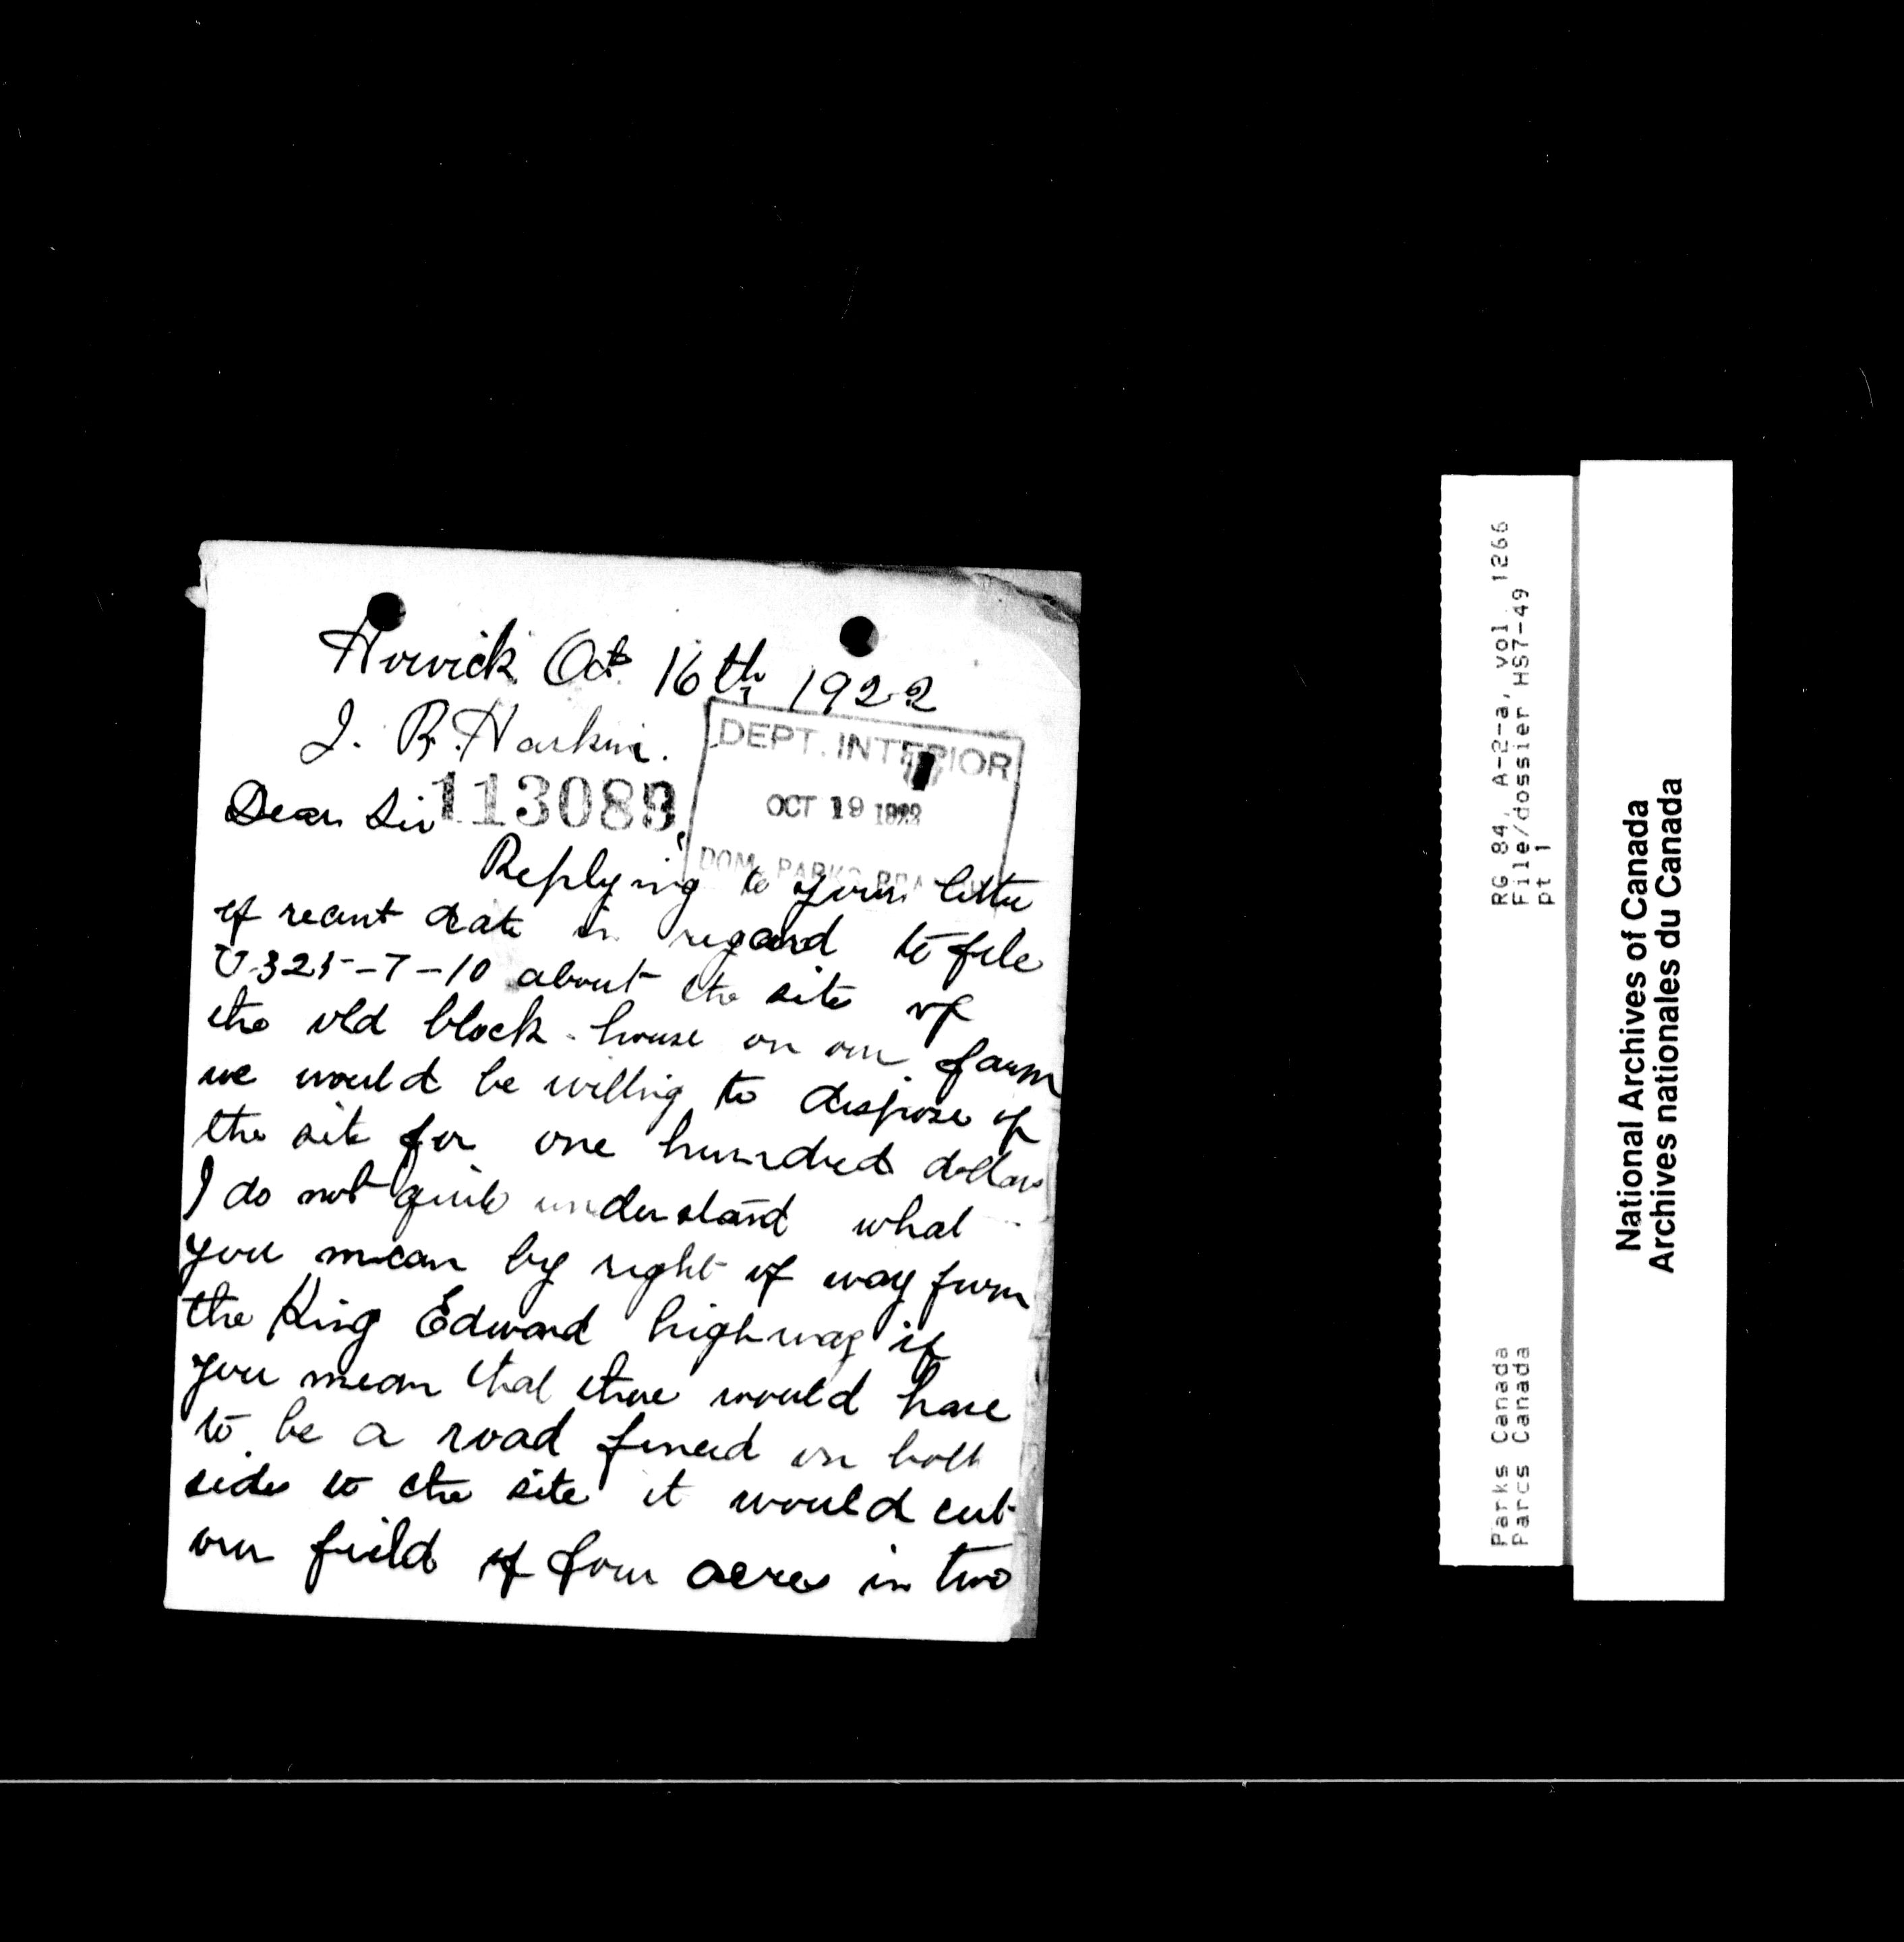 Howick Oct 16th 1922
J. B. Harkin.
DEPT. INTERIOR
OCT 19 1922
DOM. PARKS BRANCH
113089
Dear Sir
Replying to your letter
of recent date in regard to file
U-325-7-10 about the site of
the old block-house on our farm
we would be willing to dispose of
the site for one hundred dollars
I do not quite understand what
you mean by right of way from
the King Edward highway if
you mean that there would have
to be a road fenced on both
sides to the site it would cut
our field of four acres in two
RG 84, A-2-a, vol. 1266
File/dossier HS7-49
pt 1
Parks Canada
Parcs Canada
National Archives of Canada
Archives nationales du Canada